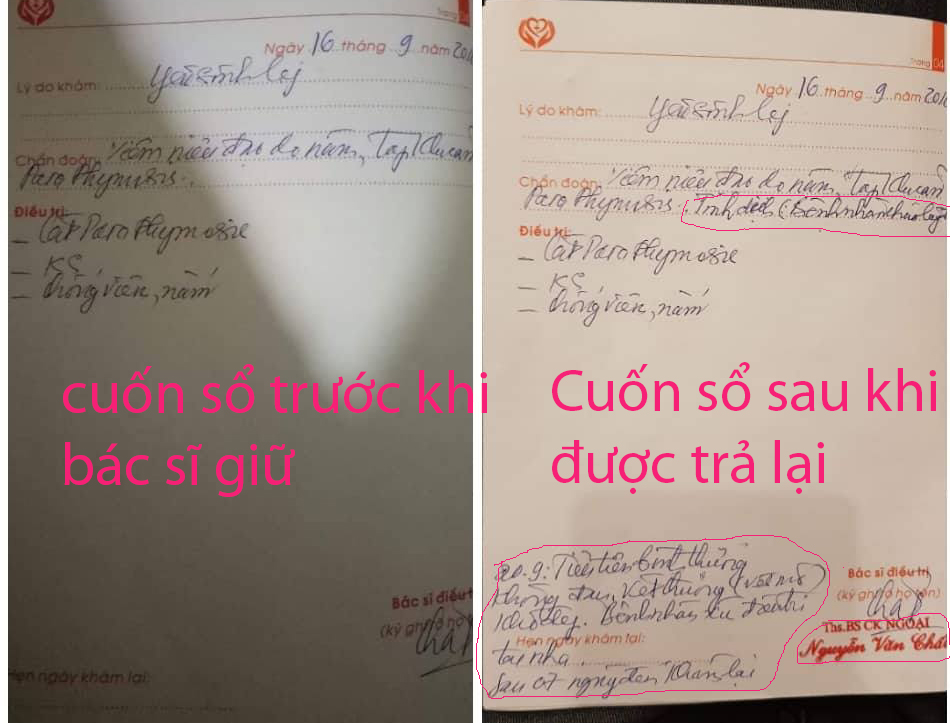 Trang
Ngày 16 tháng 9 năm 201
Lý do khám:
Chẩn đoán: Viêm niệu đạo do nấm, Tạp
Para Phymosis.
Điều trị:
– Cắt Para Phymosis
– KS
– chống viêm, nấm
cuốn sổ trước khi
bác sĩ giữ
Bác sĩ điều t
(ký ghi rõ họ
Hẹn ngày khám lại:
Trang 04
Ngày 16 tháng 9 năm 201
Lý do khám:
Chẩn đoán: Viêm niệu đạo do nấm, Tạp
Para Phymosis. (Bệnh nhân
Điều trị:
– Cắt Para Phymosis
– KS
– chống viêm, nấm
Cuốn sổ sau khi
được trả lại
20.9: Tiểu tiện bình thường
không đau, Vết thương (Vết mổ)
khô. Bệnh nhân điều trị
Hẹn ngày khám lại:
tại nhà
Sau 07 ngày đến khám lại
Bác sĩ điều trị
(ký ghi rõ họ tên)
Ths.BS CK NGOẠI
Nguyễn Văn